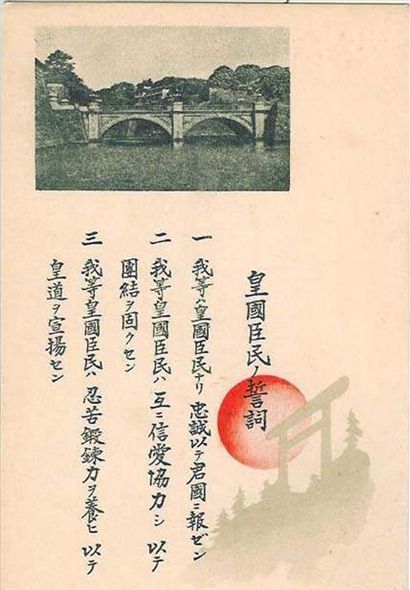 皇國臣民ノ誓詞
一 我等ハ皇國臣民ナリ 忠誠以テ君國ニ報ゼン
二 我等皇國臣民ハ 互ニ信愛協力シ 以テ
團結ヲ固クセン
三 我等皇國臣民ハ 忍苦鍛鍊力ヲ養ヒ 以テ
皇道ヲ宣揚セン